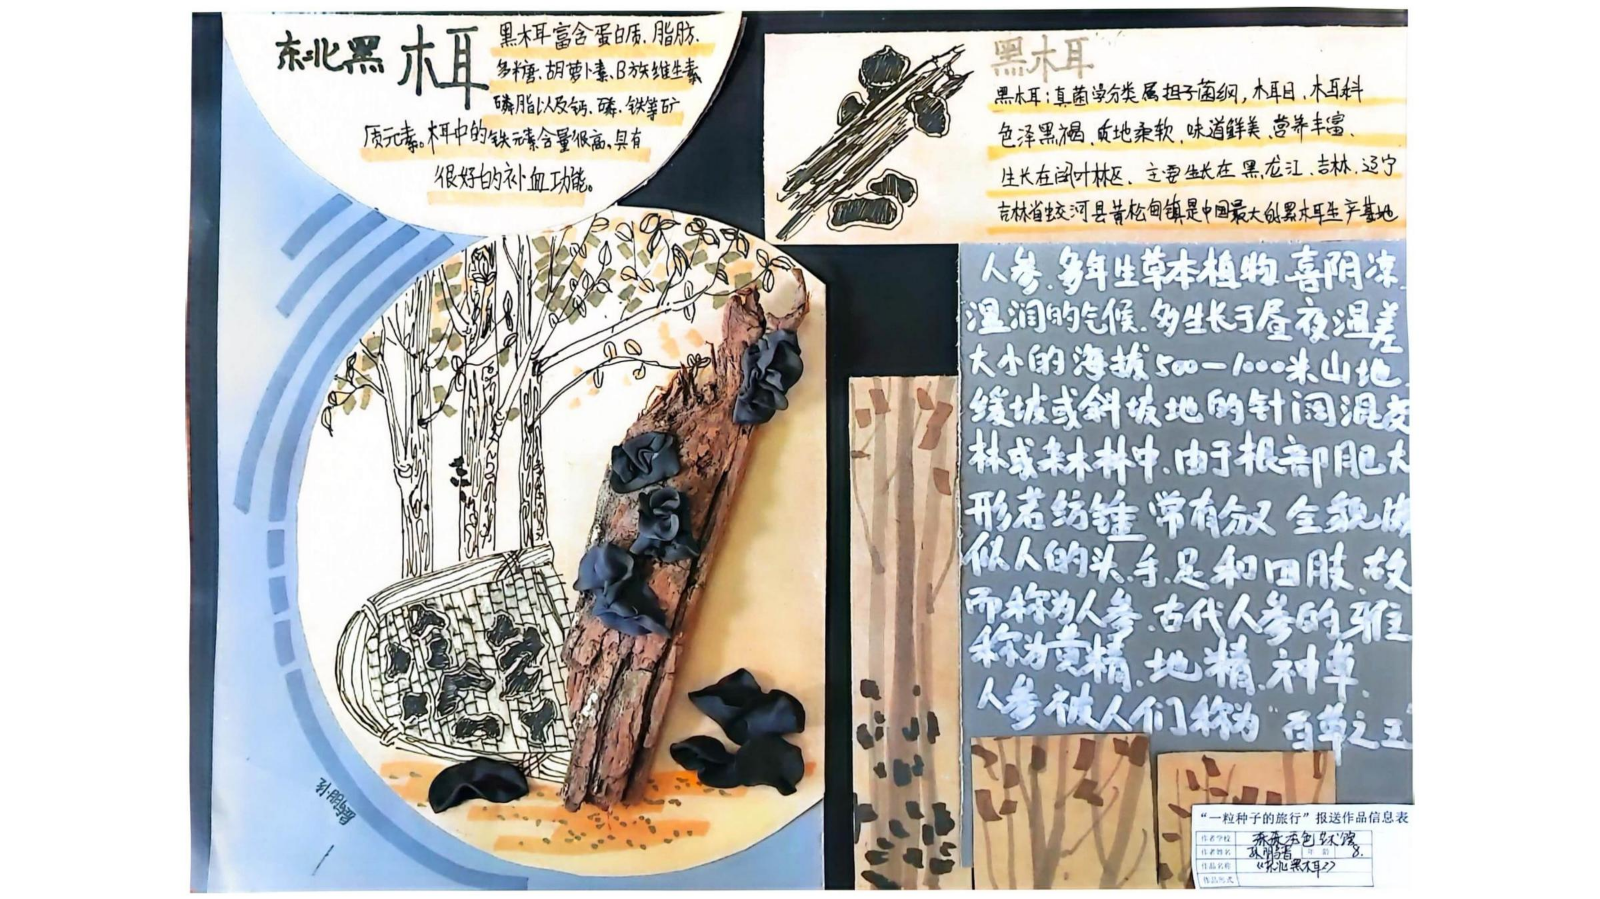 东北黑木耳
黑木耳富含蛋白质、脂肪、
多糖、胡萝卜素、B族维生素
磷脂以及钙、磷、铁等矿
质元素。木耳中的铁元素含量很高,具有
很好的补血功能。
黑木耳
黑木耳:真菌学分类属担子菌纲,木耳目、木耳科
色泽黑褐、质地柔软、味道鲜美、营养丰富、
生长在阔叶林区、主要生长在黑龙江、吉林、辽宁
吉林省蛟河县黄松甸镇是中国最大的黑木耳生产基地
人参、多年生草本植物、喜阴凉、
温润的气候、多生长于昼夜温差
大小的海拔500-1000米山地、
缓坡或斜坡地的针阔混交
林或杂木林中、由于根部肥大
形若纺锤 常有分叉 全貌
似人的头、手、足和四肢、故
而称为人参、古代人参的雅
称为黄精、地精、神草、
人参被人们称为“百草之王”
“一粒种子的旅行”报送作品信息表
作者学校
作者姓名 年龄 8.
作品名称 《东北黑木耳》
作品形式